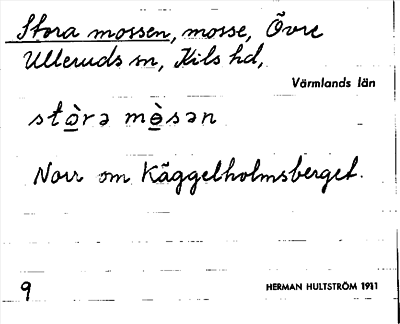 Stora mossen, mosse, Övre
Ulleruds sn, Kils hd,
Värmlands län
stòrə mèsən
Norr om Käggelholmsberget.
9
HERMAN HULTSTRÖM 1911